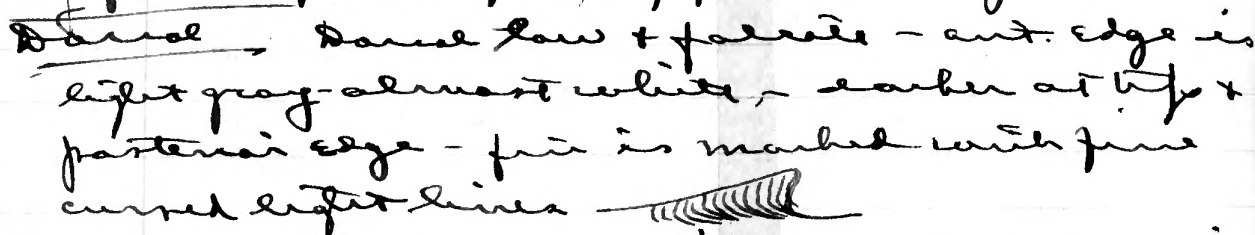 Dorsal, Dorsal low + falcate - ant. edge is
light gray - almost white, - darker at tip +
posterior edge - fin is marked with fine
curved light lines